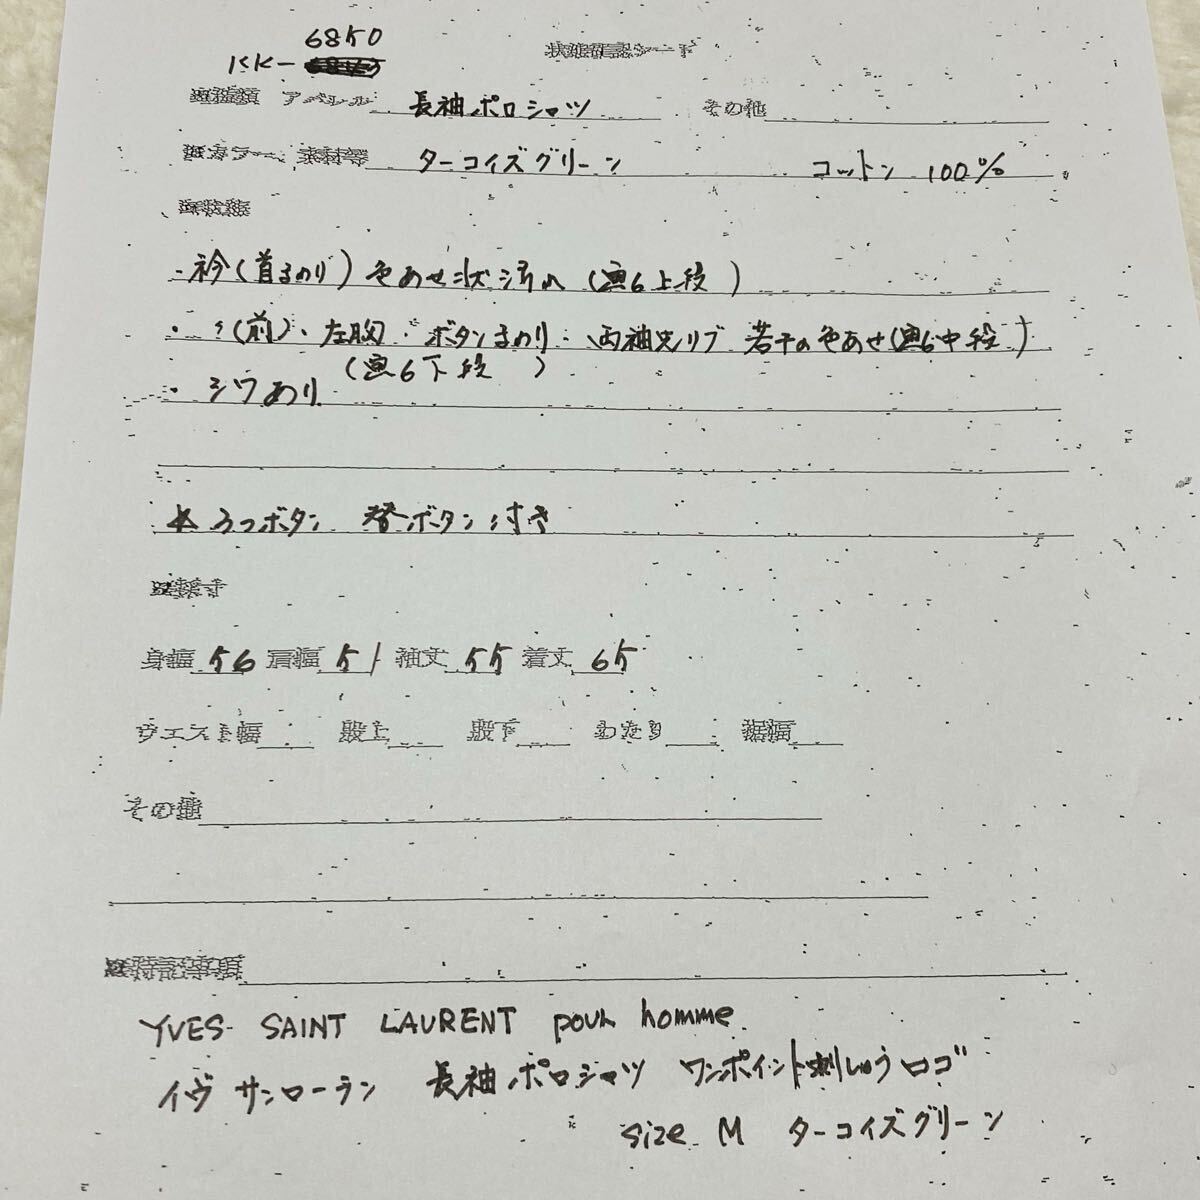 6850
KK-
状態確認シート
種類 アパレル 長袖ポロシャツ その他
カラー、素材等 ターコイズグリーン コットン 100%
状態
・衿(首まわり)色あせ状汚れ(画6上段)
・(前)・左胸・ボタンまわり・両袖先リブ 若干の色あせ(画6中段)
(画6下段)
・シワあり
★3つボタン 替ボタン付き
身幅 56 肩幅 51 袖丈 55 着丈 65
ウエスト幅 股上 股下 わたり 裾幅
その他
特記事項
YVES SAINT LAURENT pour homme
イヴ サンローラン 長袖ポロシャツ ワンポイント刺しゅうロゴ
size M ターコイズグリーン